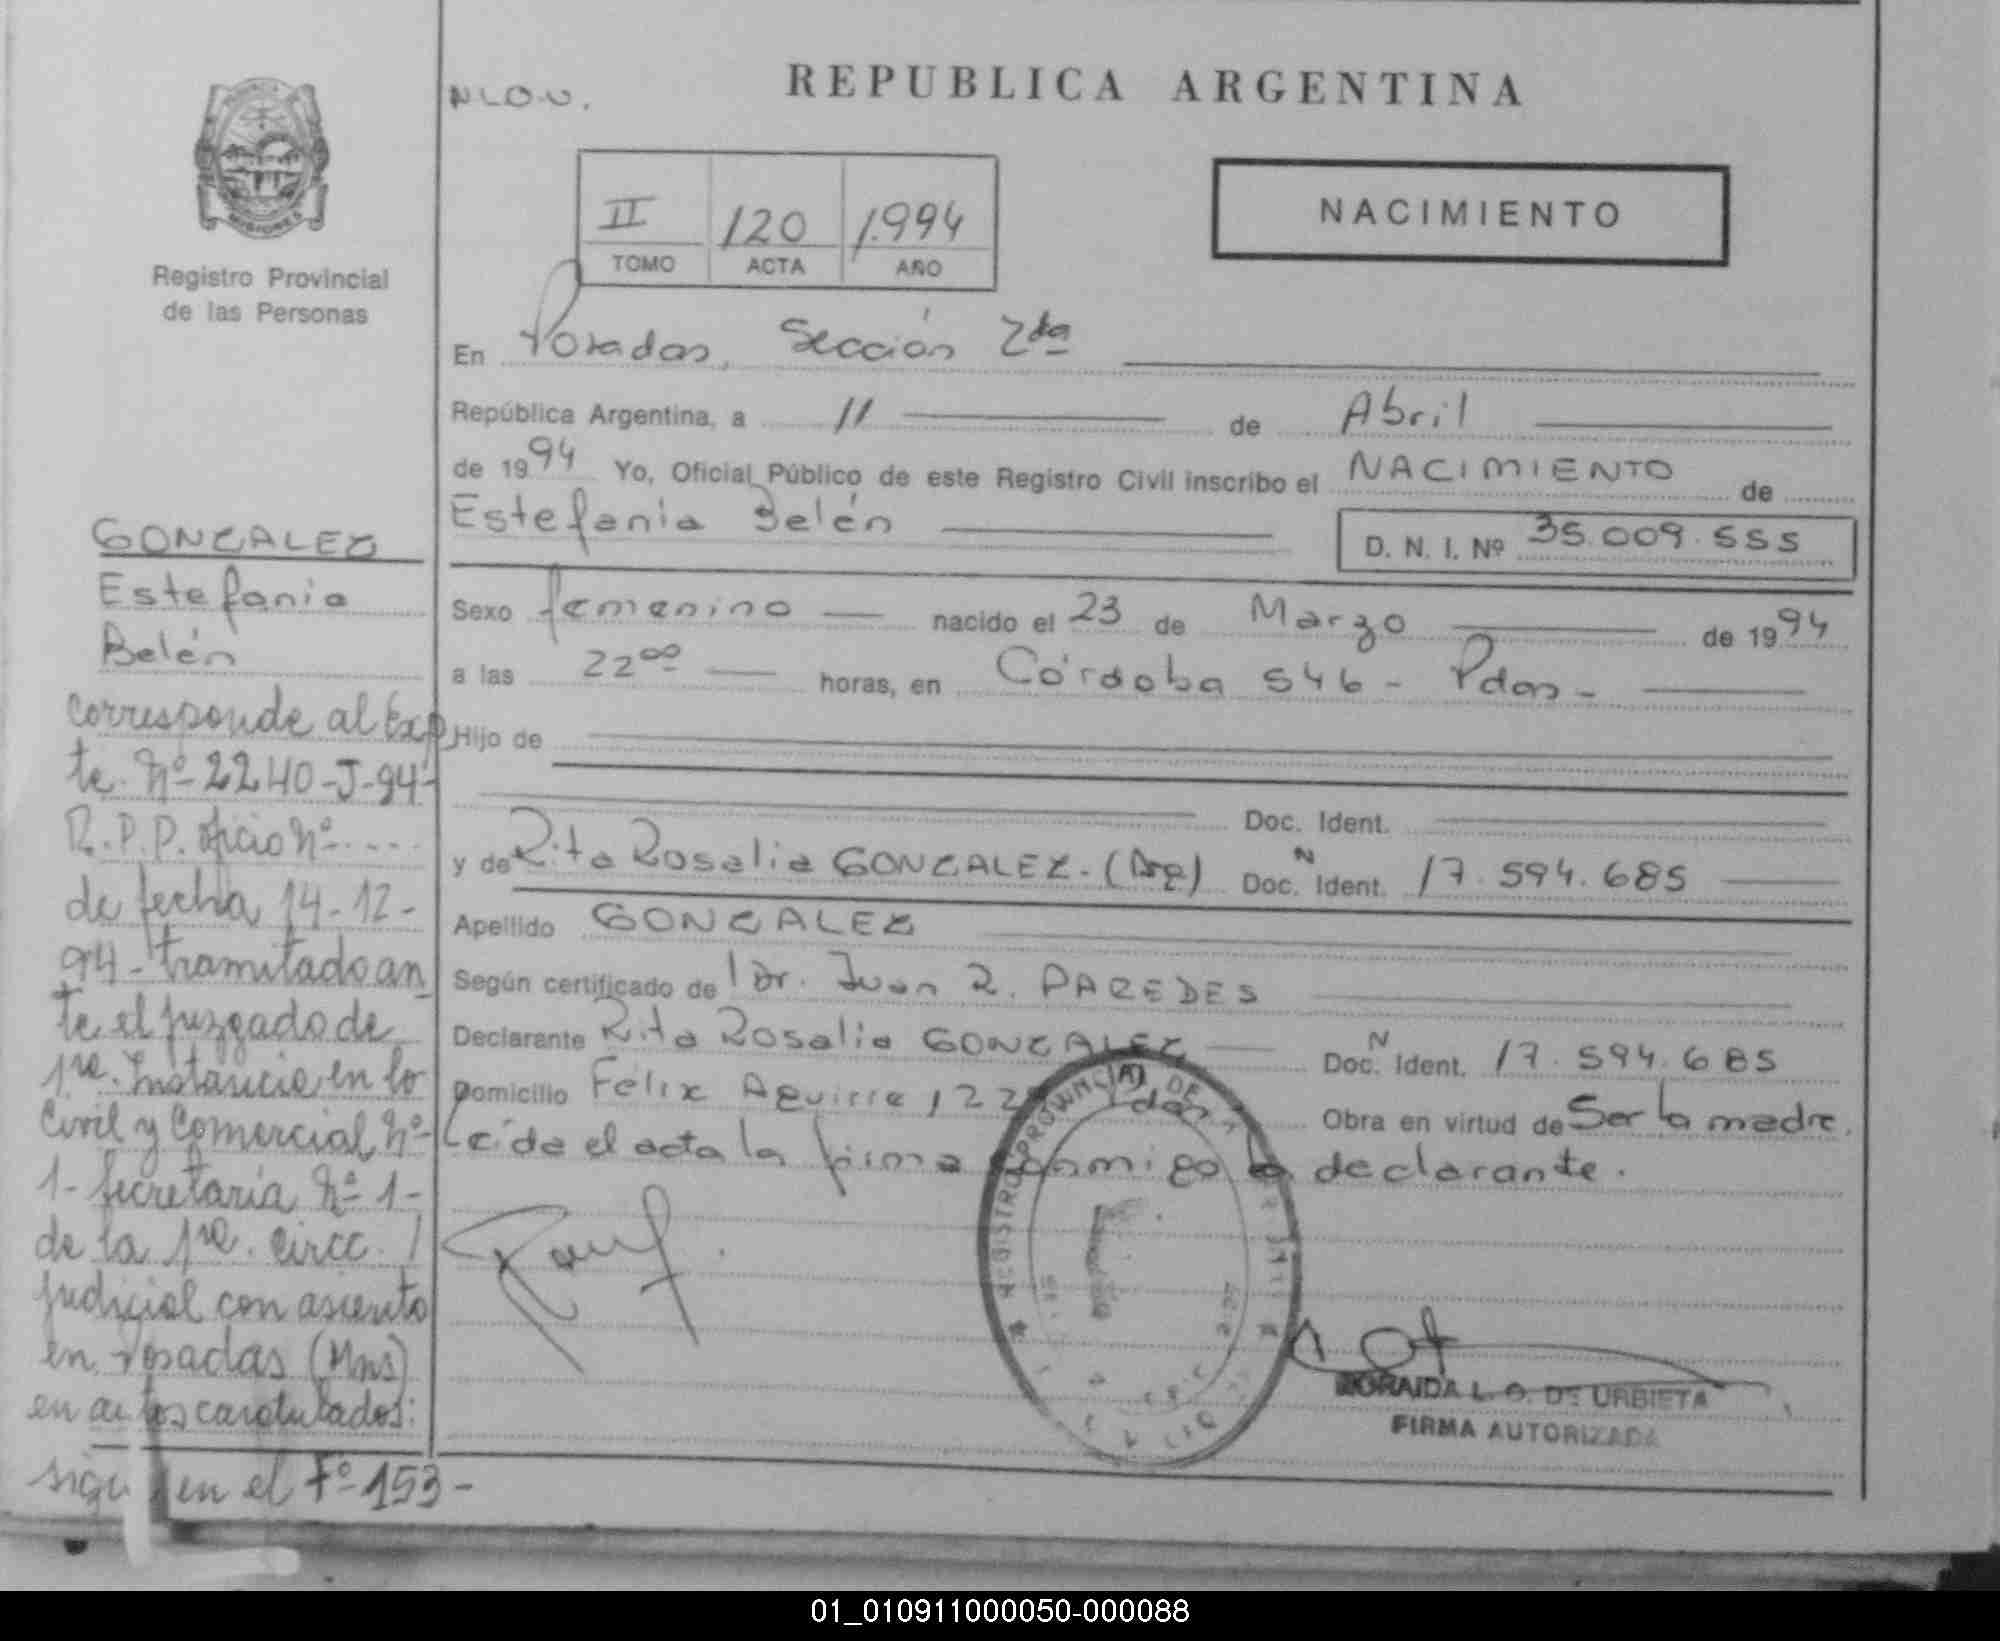 MISIONES
Registro Provincial
de las Personas
GONZALEZ
Estefania
Belén
Corresponde al Exp
te. Nº 2240-J-94-
R.P.P. oficio Nº ....
de fecha 14-12-
94- tramitado an
te el juzgado de
1ra. Instancia en lo
Civil y Comercial Nº
1- Secretaría Nº 1-
de la 1ra. Circc.
judicial con asiento
en Posadas (Mns)
en autos caratulados:
sigue en el Fº 153-
REPUBLICA ARGENTINA
II 120 1.994
TOMO ACTA AÑO
NACIMIENTO
En Posadas, Sección 2da
República Argentina, a 11 de Abril
de 1994 Yo, Oficial Público de este Registro Civil inscribo el NACIMIENTO de
Estefania Belén D. N. I. Nº 35.009.555
Sexo femenino nacido el 23 de Marzo de 1994
a las 22 00 horas, en Córdoba 546 - Pdas -
Hijo de
Doc. Ident.
y de Rita Rosalia GONZALEZ. (Arg) Doc. N Ident. 17.594.685
Apellido GONZALEZ
Según certificado de Dr. Juan R. PAREDES
Declarante Rita Rosalia GONZALEZ Doc. N Ident. 17.594.685
Domicilio Félix Aguirre Pdas Obra en virtud de Ser la madre.
Leída el acta la firma conmigo la declarante.
REGISTRO PROVINCIAL DE
ZORAIDA L. O. DE URBIETA
FIRMA AUTORIZADA
01_010911000050-000088